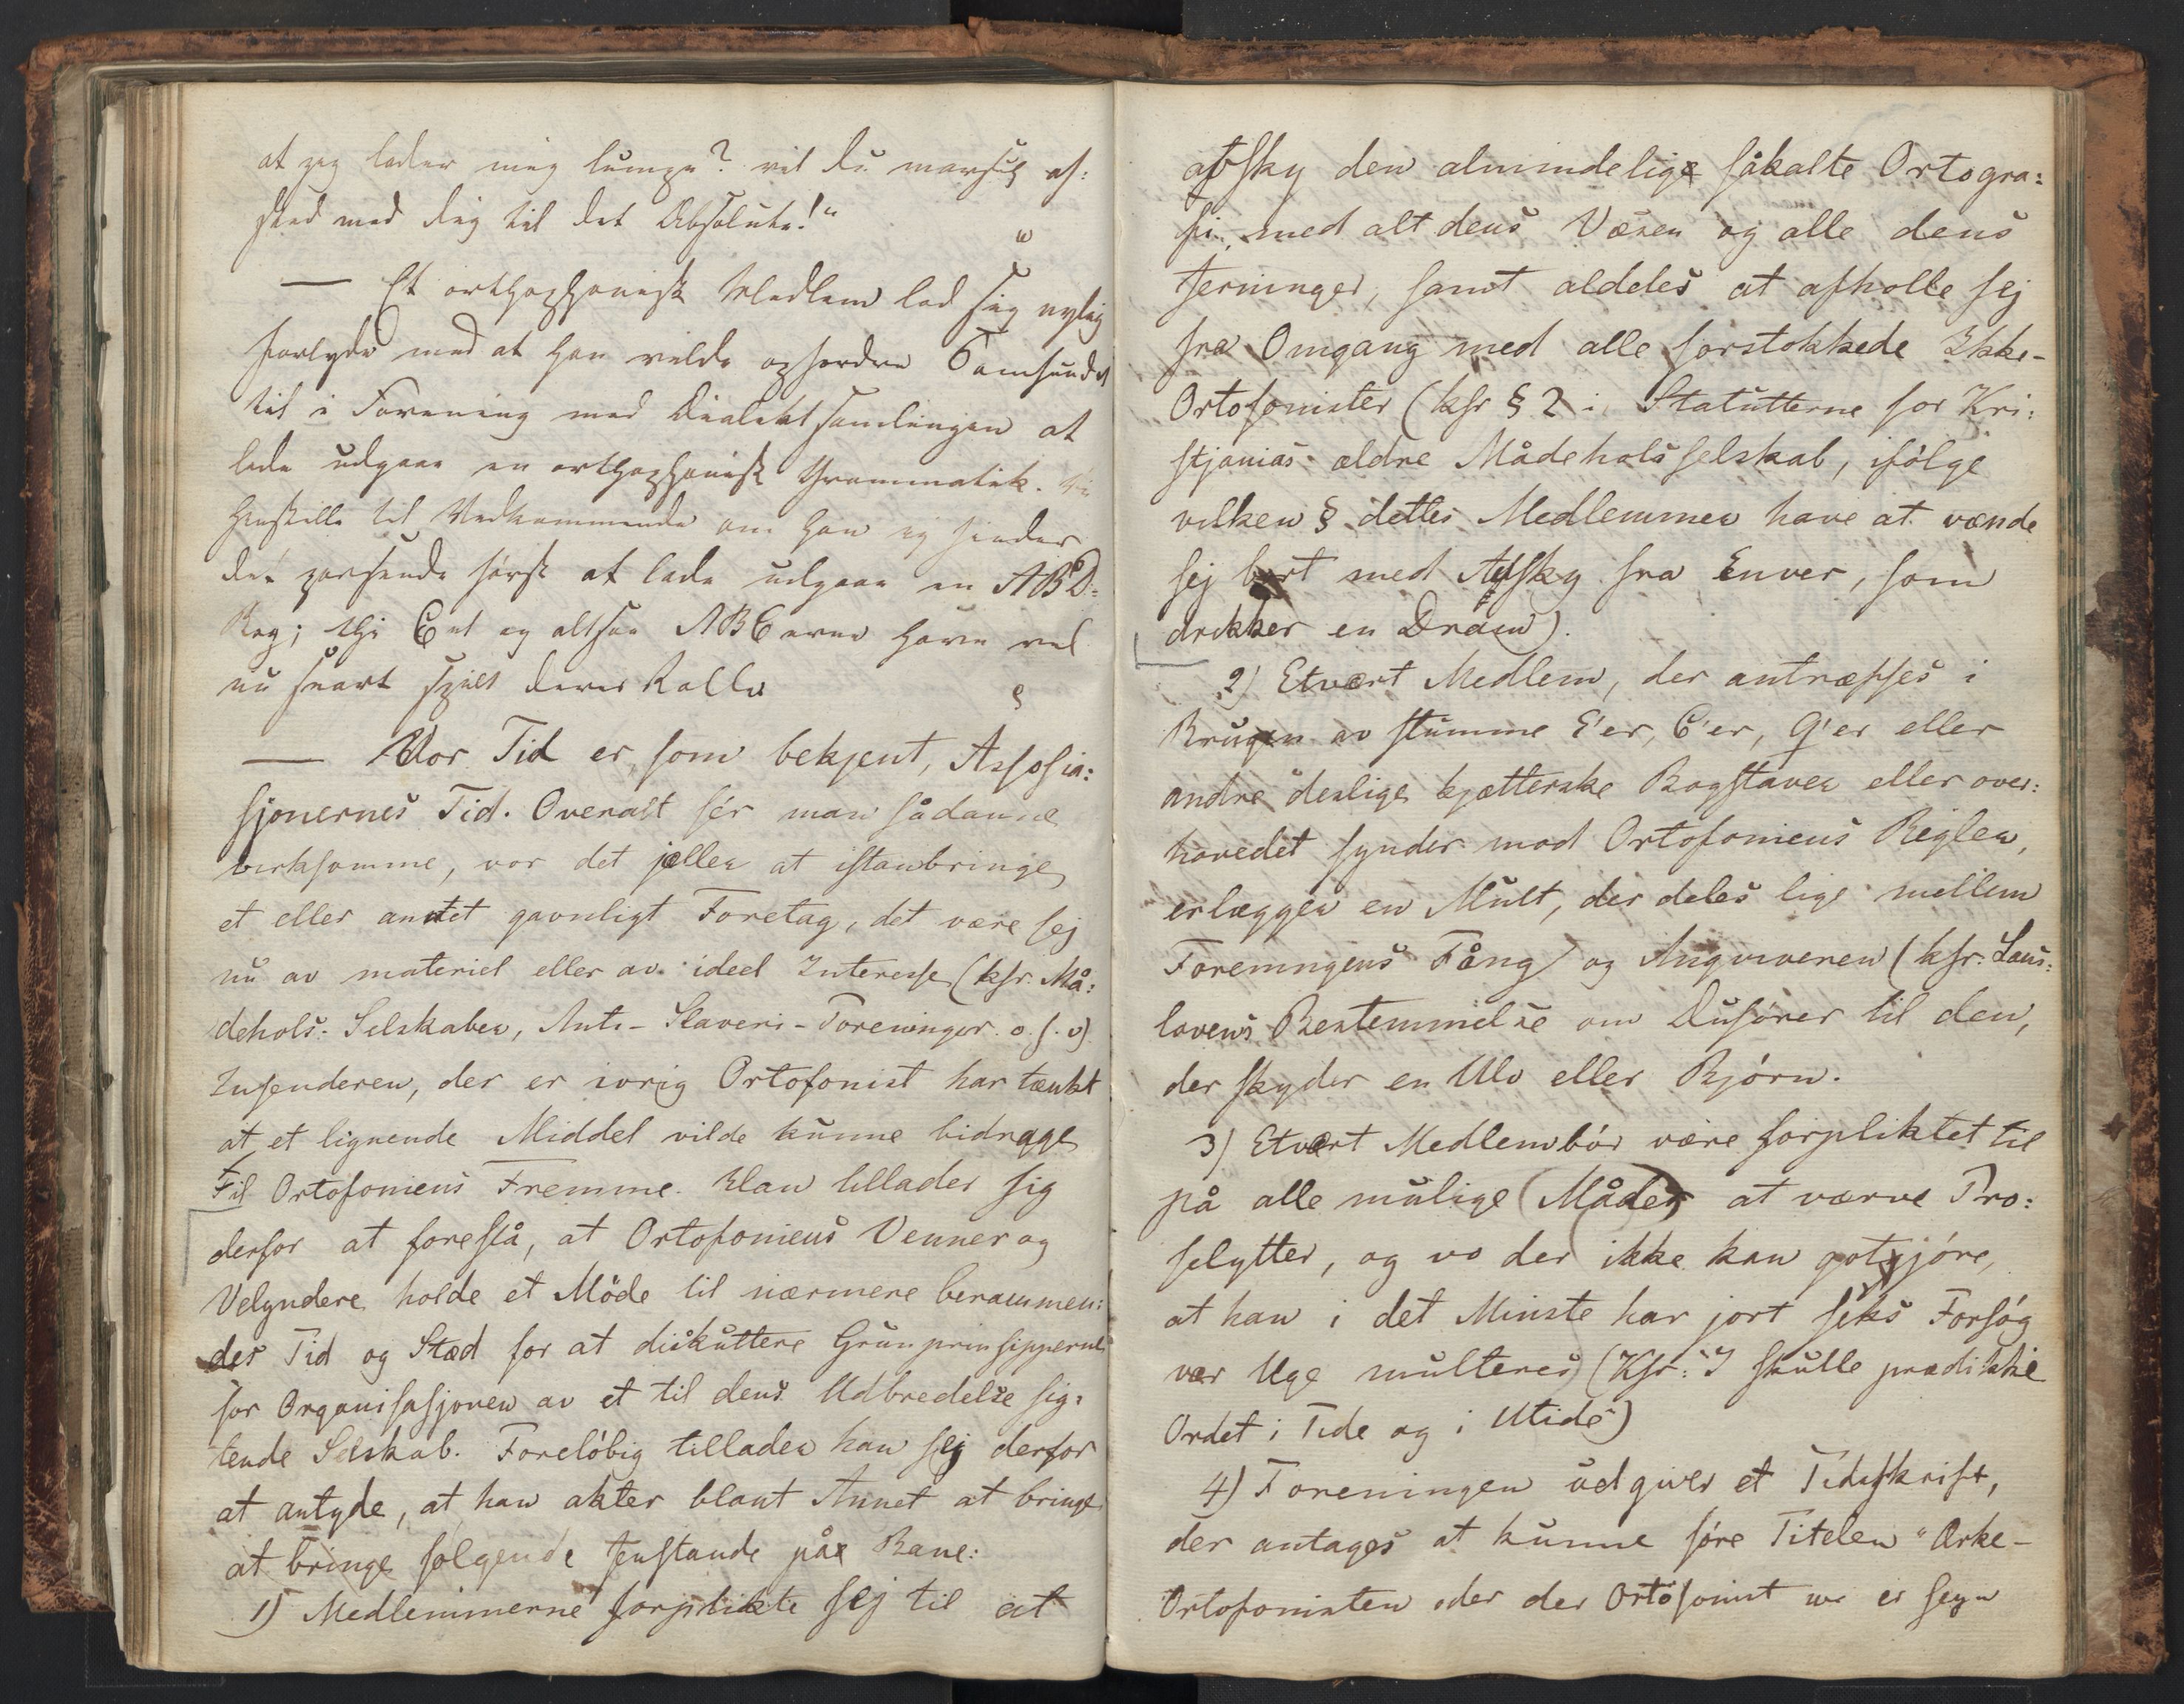 at jeg lader mig lumpe? vil du marsch af:
sted med dig til det Absolute!"
— Et orthophonisk Medlem lod sig nylig
forlyde med at han vilde opfordre Samfundet
til i Forening med Dialektsamlingen at
lade udgaae en orthophonisk Grammatik. Vi
henstille til Vedkommende om han ej finder
det passende først at lade udgaae en ABD-
Bog; thi Cet og altsaa ABCerne have vel
nu snart spilt deres Rolle
— Vor Tid er, som bekjent, Assosia:
sjonernes Tid. Overalt sér man sådanne
virksomme, vor det jæller at istanbringe
et eller andet gavnligt Foretag, det være sej
nu av materiel eller av ideel Interesse (kfr. Må:
dehols-Selskaber, Anti-Slaveri-Foreninger o. s. v)
Insenderen, der er ivrig Ortofonist har tænkt
at et lignende Middel vilde kunne bidrage
til Ortofoniens Fremme. Han tillader sig
derfor at foreslå, at Ortofoniens Venner og
Velyndere holde et Möde til nærmere berammen:
des Tid og Stæd for at diskuttere Grunprinsipperne
for Organisasjonen av et til dens Udbredelse sig:
tende Selskab. Foreløbig tillader han sej derfor
at antyde, at han akter blant Annet at bringe
at bringe følgende Jenstande på Bane:
1) Medlemmerne forplikte sej til at
afsky den almindelige såkalte Ortogra:
fi, med alt dens Væsen og alle dens
Jerninger, samt aldeles at afholle sej
fra Omgang med alle forstokkede Ikke-
Ortofonister (kfr § 2 i Statutterne for Kri:
stjanias ældre Mådeholsselskab, ifølge
vilken § dettes Medlemmer have at vænde
sej bort med Afsky fra Enver, som
drikker en Dram).
2) Etvært Medlem, der antræffes i
Brugen av stumme E'er, C'er, Q'er eller
andre deslige kjætterske Bogstaver eller over:
hovedet synder mod Ortofoniens Regler,
erlægger en Mult, der deles lige mellem
Foreningens Fång og Angiveren (kfr. Lans:
lovens Bestemmelse om Dusører til den,
der skyder en Ulv eller Bjørn.
3) Etvært Medlem bör være forpliktet til
på alle mulige Måder at værve Pro:
selytter, og vo der ikke kan gotjjöre,
at han i det Minste har jort seks Forsøg
vær Uge multeres (Kfr: "I skulle prædikke
Ordet i Tide og i Utide")
4) Foreningen udgiver et Tidsskrift,
der antages at kunne føre Titelen "Ærke-
Ortofonisten eder der Ortofonist er seyn